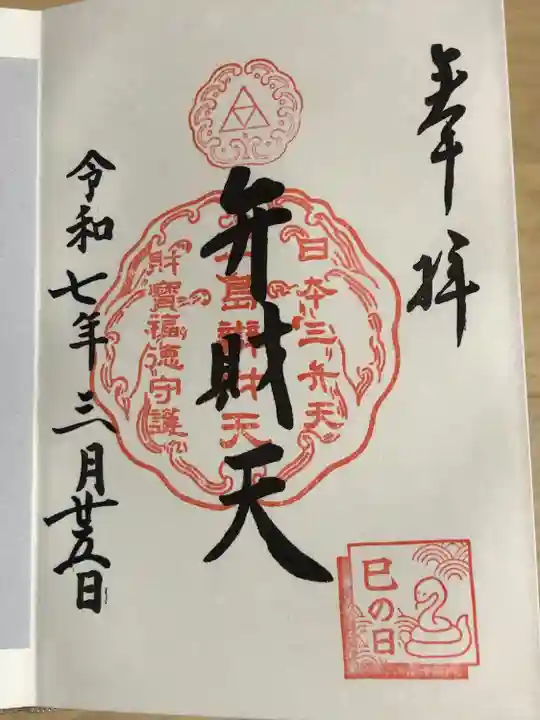 奉拝
日本三弁天
島辨財天
財寶福徳守護
弁財天
巳の日
令和七年三月廿五日